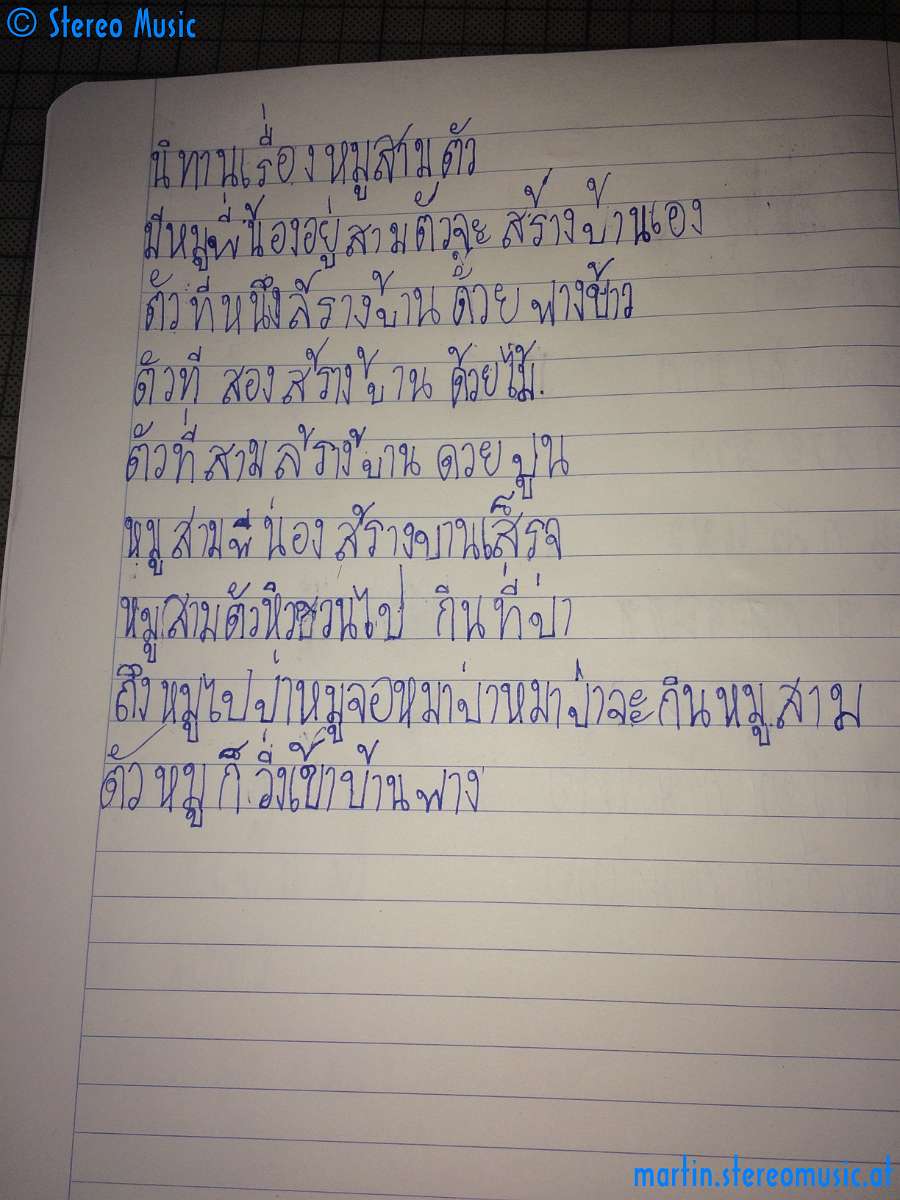 © Stereo Music
นิทานเรื่องหมูสามตัว
มีหมูพี่น้องอยู่สามตัวจะสร้างบ้านเอง
ตัวที่หนึ่งสร้างบ้านด้วยฟางข้าว
ตัวที สองสร้างบ้าน ด้วยไม้.
ตัวที่สามสร้างบ้าน ดวยปูน
หมูสามพี่น่องสร้างบานเส็รจ
หมูสามตัวหิวชวนไป กินที่ป่า
ถึงหมูไปป่าหมูจอหมาป่าหมาป่าจะกินหมูสาม
ตัวหมูก็วิ่งเข้าบ้านฟาง
martin.stereomusic.at